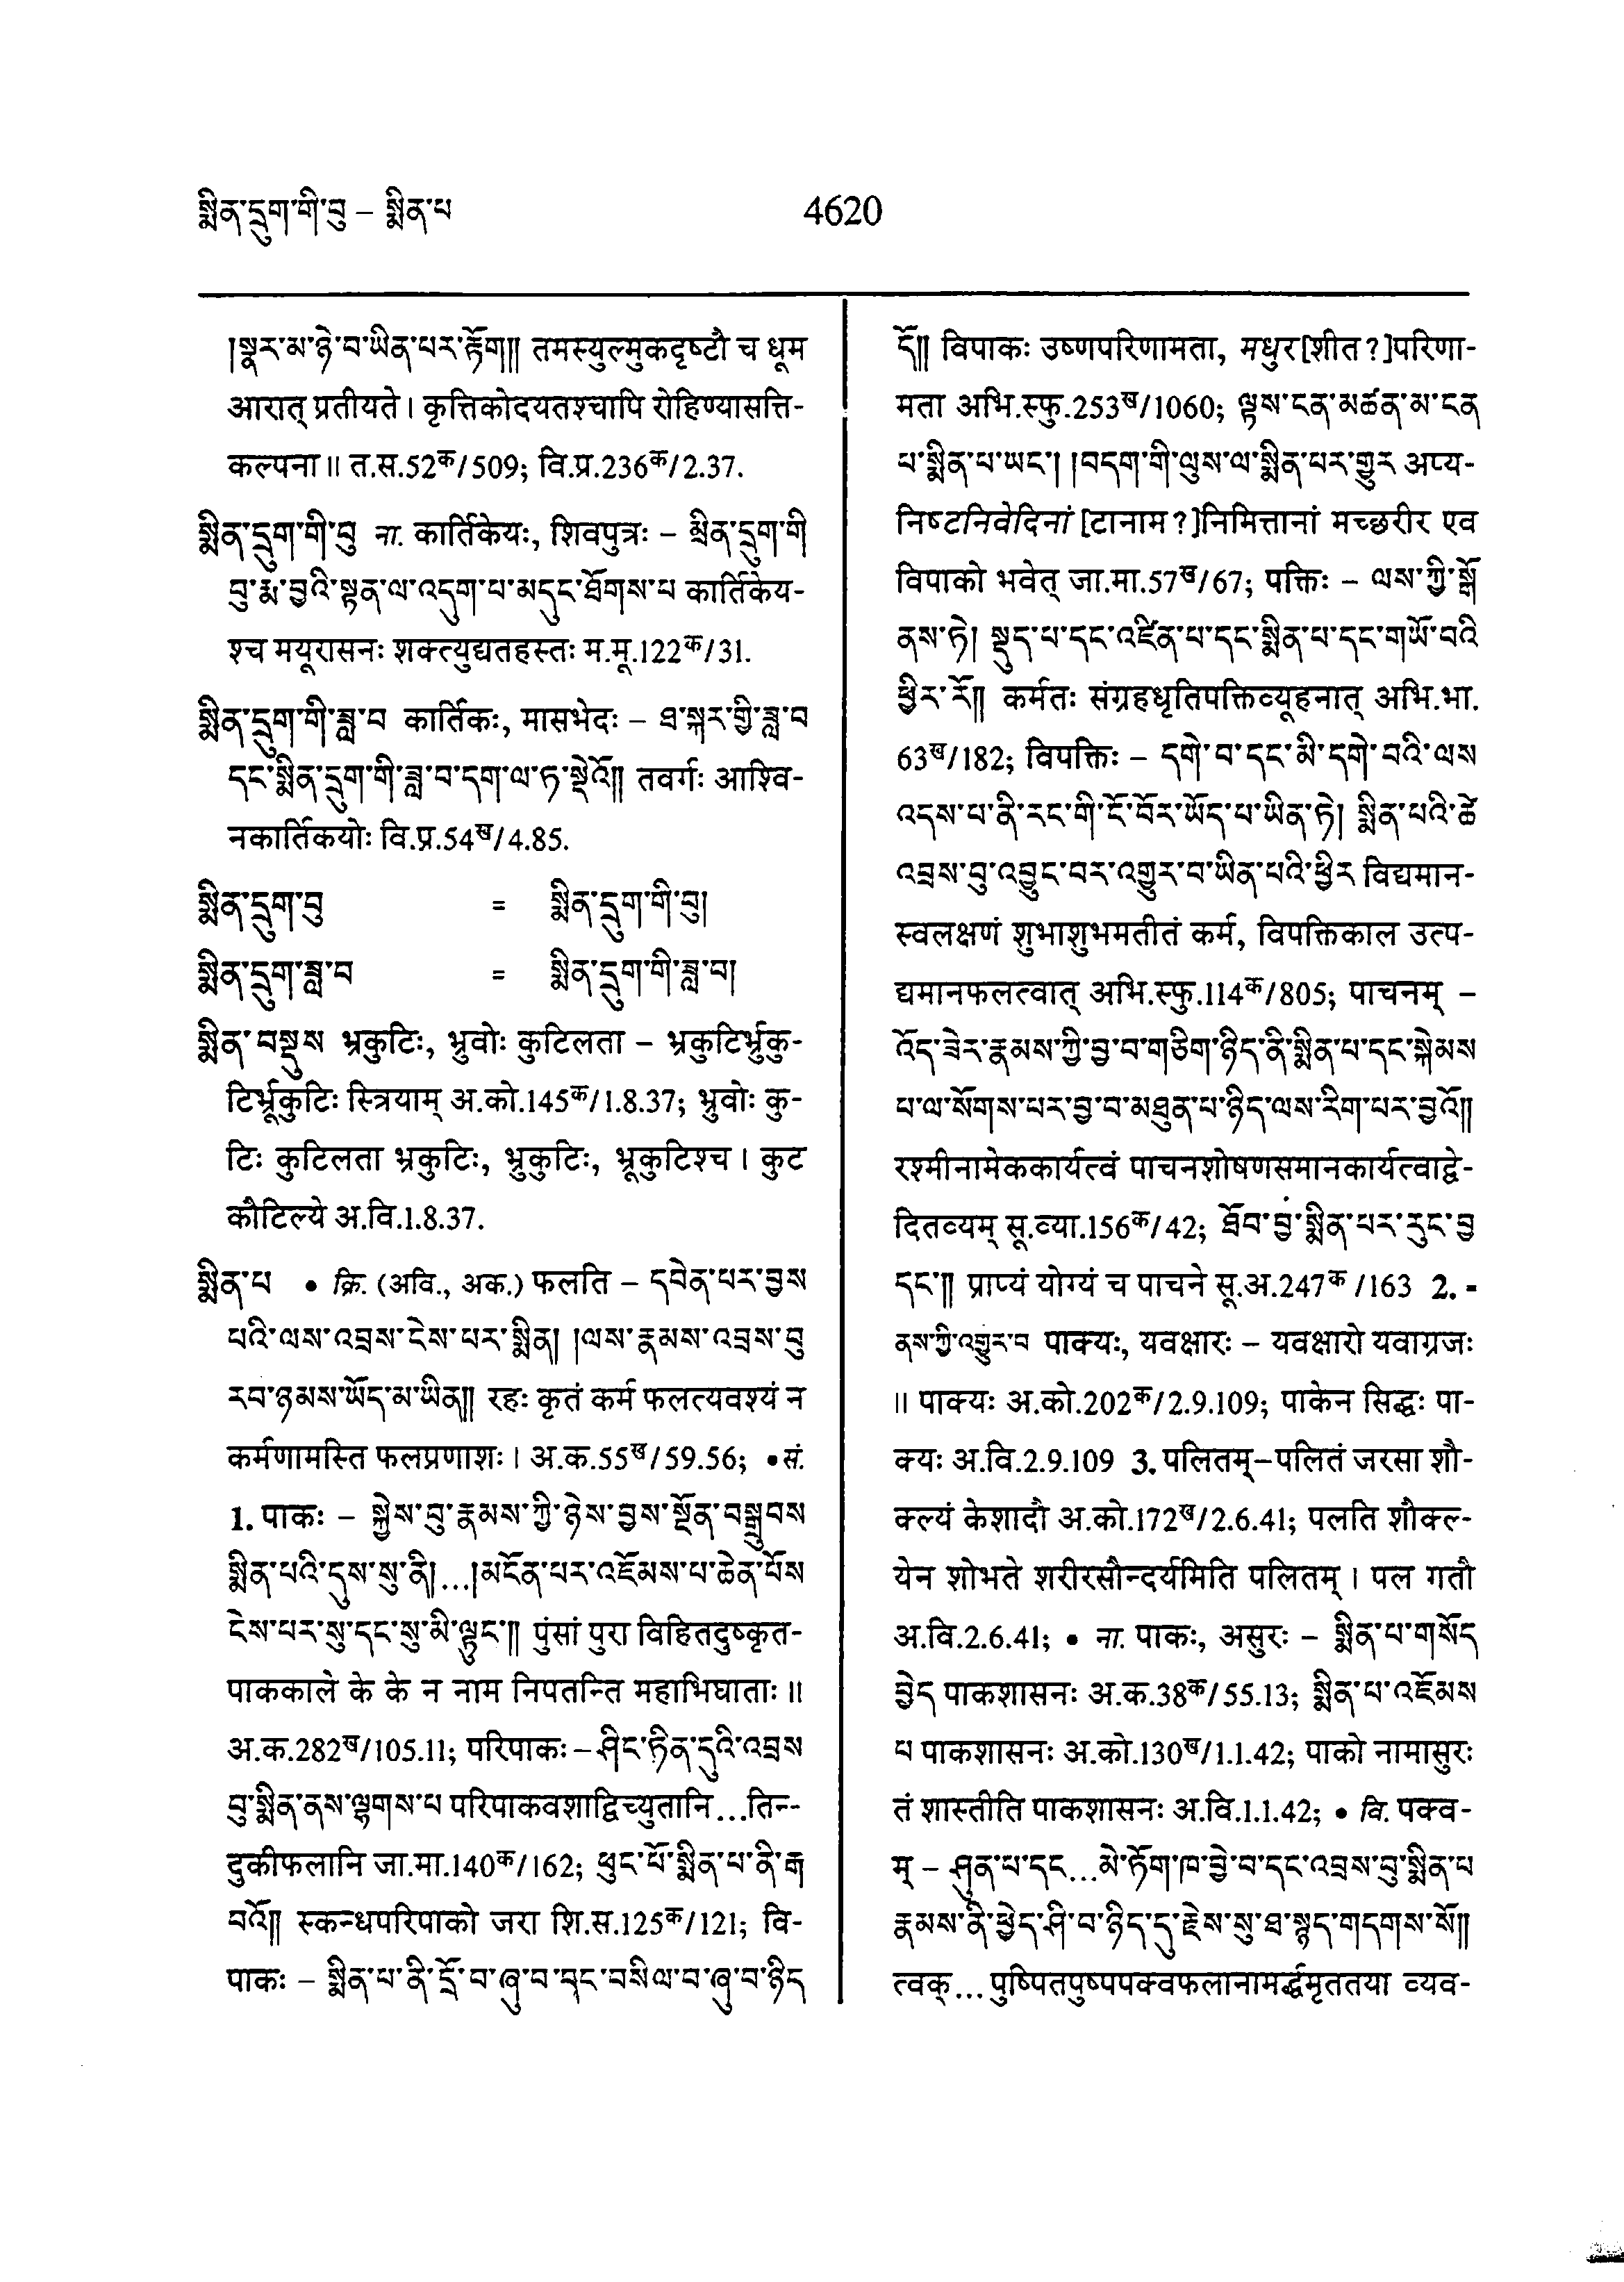 སྨིན་དྲུག་གི་བུ – སྨིན་པ
4620
།སྣར་མ་ཉེ་བ་ཡིན་པར་རྟོག།། तमस्युल्मुकदृष्टौ च धूम
आरात् प्रतीयते। कृत्तिकोदयतश्चापि रोहिण्यासत्ति-
कल्पना॥ त.स.52क/509; वि.प्र.236क/2.37.
སྨིན་དྲུག་གི་བུ ना. कार्तिकेयः, शिवपुत्रः – སྨིན་དྲུག་གི
བུ་རྨ་བྱའི་སྟན་ལ་འདུག་པ་མདུང་ཐོགས་པ कार्तिकेय-
श्च मयूरासनः शक्त्युद्यतहस्तः म.मू.122क/31.
སྨིན་དྲུག་གི་ཟླ་བ कार्तिकः, मासभेदः – ཐ་སྐར་གྱི་ཟླ་བ
དང་སྨིན་དྲུག་གི་ཟླ་བ་དག་ལ་ཏ་སྡེའོ།། तवर्गः आश्वि-
नकार्तिकयोः वि.प्र.54ख/4.85.
སྨིན་དྲུག་བུ = སྨིན་དྲུག་གི་བུ།
སྨིན་དྲུག་ཟླ་བ = སྨིན་དྲུག་གི་ཟླ་བ།
སྨིན་བསྡུས भ्रकुटिः, भ्रुवोः कुटिलता – भ्रकुटिर्भ्रुकु-
टिर्भ्रूकुटिः स्त्रियाम् अ.को.145क/1.8.37; भ्रुवोः कु-
टिः कुटिलता भ्रकुटिः, भ्रुकुटिः, भ्रूकुटिश्च। कुट
कौटिल्ये अ.वि.1.8.37.
སྨིན་པ • क्रि. (अवि., अक.) फलति – དབེན་པར་བྱས
པའི་ལས་འབྲས་ངེས་པར་སྨིན། །ལས་རྣམས་འབྲས་བུ
རབ་ཉམས་ཡོད་མ་ཡིན།། रहः कृतं कर्म फलत्यवश्यं न
कर्मणामस्ति फलप्रणाशः। अ.क.55ख/59.56; • सं.
1. पाकः – སྐྱེས་བུ་རྣམས་ཀྱི་ཉེས་བྱས་སྔོན་བསྒྲུབས
སྨིན་པའི་དུས་སུ་ནི།...།མངོན་པར་འཇོམས་པ་ཆེན་པོས
ངེས་པར་སུ་དང་སུ་མི་ལྟུང་།། पुंसां पुरा विहितदुष्कृत-
पाककाले के के न नाम निपतन्ति महाभिघाताः॥
अ.क.282ख/105.11; परिपाकः – ཤིང་ཏིན་དུའི་འབྲས
བུ་སྨིན་ནས་ལྷགས་པ परिपाकवशाद्विच्युतानि...तिन्-
दुकीफलानि जा.मा.140क/162; ཕུང་པོ་སྨིན་པ་ནི་རྒ
བའོ།། स्कन्धपरिपाको जरा शि.स.125क/121; वि-
पाकः – སྨིན་པ་ནི་དྲོ་བ་ཞུ་བ་དང་བསིལ་བ་ཞུ་བ་ཉིད
དོ།། विपाकः उष्णपरिणामता, मधुर[शीत?]परिणा-
मता अभि.स्फु.253ख/1060; ལྟས་ངན་མཚན་མ་ངན
པ་སྨིན་པ་ཡང་། །བདག་གི་ལུས་ལ་སྨིན་པར་གྱུར अप्य-
निष्टनिवेदिनां [टानाम?]निमित्तानां मच्छरीर एव
विपाको भवेत् जा.मा.57ख/67; पक्तिः – ལས་ཀྱི་སྒོ
ནས་ཏེ། སྡུད་པ་དང་འཛིན་པ་དང་སྨིན་པ་དང་གཡོ་བའི
ཕྱིར་རོ།། कर्मतः संग्रहधृतिपक्तिव्यूहनात् अभि.भा.
63ख/182; विपक्तिः – དགེ་བ་དང་མི་དགེ་བའི་ལས
འདས་པ་ནི་རང་གི་ངོ་བོར་ཡོད་པ་ཡིན་ཏེ། སྨིན་པའི་ཚེ
འབྲས་བུ་འབྱུང་བར་འགྱུར་བ་ཡིན་པའི་ཕྱིར विद्यमान-
स्वलक्षणं शुभाशुभमतीतं कर्म, विपक्तिकाल उत्प-
द्यमानफलत्वात् अभि.स्फु.114क/805; पाचनम् –
འོད་ཟེར་རྣམས་ཀྱི་བྱ་བ་གཅིག་ཉིད་ནི་སྨིན་པ་དང་སྐེམས
པ་ལ་སོགས་པར་བྱ་བ་མཐུན་པ་ཉིད་ལས་རིག་པར་བྱའོ།།
रश्मीनामेककार्यत्वं पाचनशोषणसमानकार्यत्वाद्वे-
दितव्यम् सू.व्या.156क/42; ཐོབ་བྱ་སྨིན་པར་རུང་བྱ
དང་།། प्राप्यं योग्यं च पाचने सू.अ.247क/163 2. -
ནས་ཀྱི་འགྱུར་བ पाक्यः, यवक्षारः – यवक्षारो यवाग्रजः
॥ पाक्यः अ.को.202क/2.9.109; पाकेन सिद्धः पा-
क्यः अ.वि.2.9.109 3. पलितम्–पलितं जरसा शौ-
क्ल्यं केशादौ अ.को.172ख/2.6.41; पलति शौक्ल-
येन शोभते शरीरसौन्दर्यमिति पलितम्। पल गतौ
अ.वि.2.6.41; • ना. पाकः, असुरः – སྨིན་པ་གསོད
བྱེད पाकशासनः अ.क.38क/55.13; སྨིན་པ་འཇོམས
པ पाकशासनः अ.को.130ख/1.1.42; पाको नामासुरः
तं शास्तीति पाकशासनः अ.वि.1.1.42; • वि. पक्व-
म् – ཤུན་པ་དང...མེ་ཏོག་ཁ་བྱེ་བ་དང་འབྲས་བུ་སྨིན་པ
རྣམས་ནི་ཕྱེད་ཤི་བ་ཉིད་དུ་རྗེས་སུ་ཐ་སྙད་གདགས་སོ།།
त्वक्...पुष्पितपुष्पपक्वफलानामर्द्धमृततया व्यव-